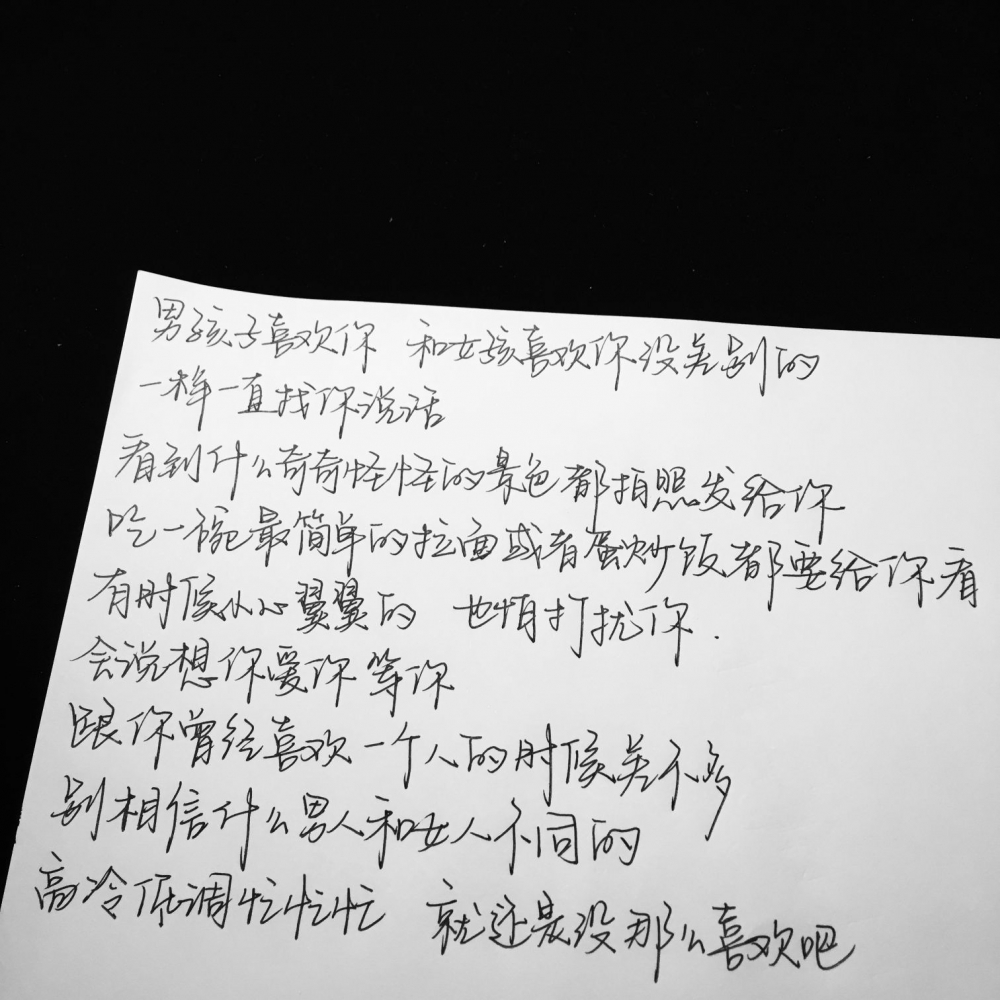 男孩子喜欢你 和女孩喜欢你没差别的
一样一直找你说话
看到什么奇奇怪怪的景色都拍照发给你
吃一碗最简单的拉面或者蛋炒饭都要给你看
有时候小心翼翼的 也怕打扰你.
会说想你爱你等你
跟你曾经喜欢一个人的时候差不多
别相信什么男人和女人不同的
高冷低调忙忙忙 就还是没那么喜欢吧